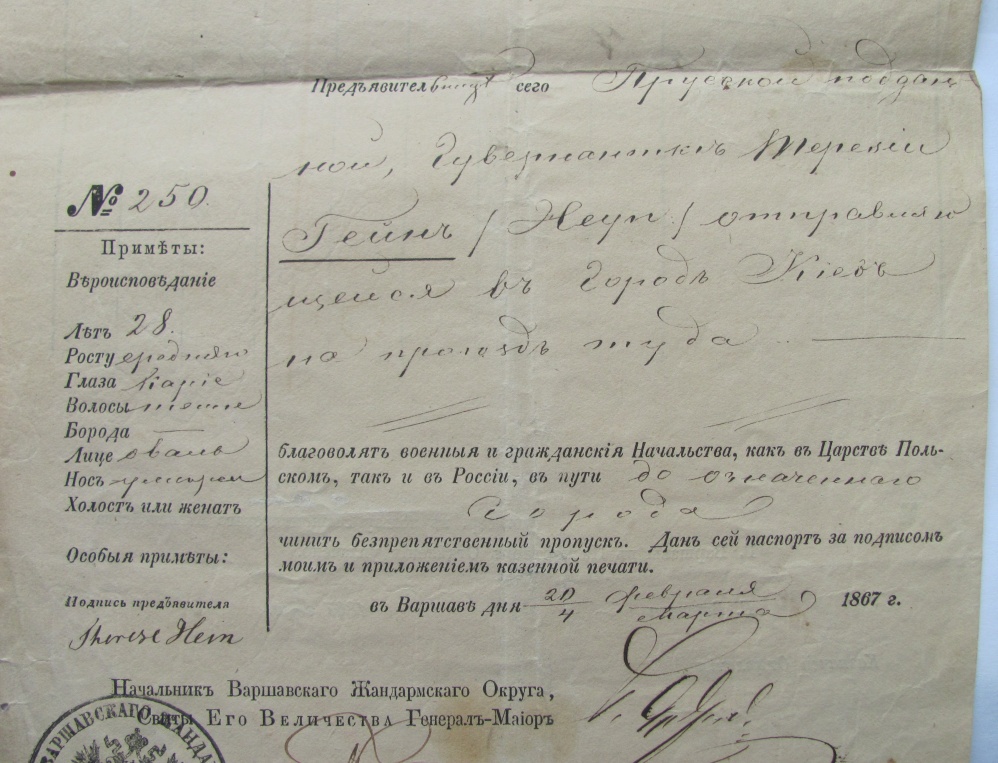 Предъявительницѣ сего Прусской поддан
ной, Гувернанткѣ Терезіи
Гейнъ / Неип / отправляю
щейся въ городъ Кіевъ
на проѣздъ туда
№ 250.
Примѣты:
Вѣроисповѣданіе
Лѣтъ 28.
Росту средняго
Глаза каріе
Волосы темные
Борода —
Лице оваль
Носъ умѣрен
Холостъ или женатъ
Особыя примѣты:
Подпись предъявителя
Therese Hein
благоволятъ военныя и гражданскія Начальства, какъ въ Царствѣ Поль-
скомъ, такъ и въ Россіи, въ пути до означеннаго
города
чинить безпрепятственный пропускъ. Данъ сей паспортъ за подписомъ
моимъ и приложеніемъ казенной печати.
въ Варшавѣ дня 20/4 февраля/марта 1867 г.
Начальникъ Варшавскаго Жандармскаго Округа,
Свиты Его Величества Генералъ-Маіоръ
ВАРШАВСКАГО ЖАНДА